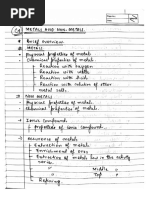 Ch METALS AND NON-METALS
* Brief overview.
* METALS
- Physical properties of metals.
- Chemical properties of metals.
- Reaction with oxygen
- Reaction with water
- Reaction with acid
- Reaction with solution of other
metal salts.
* NON METALS
- Physical properties of metals.
- Chemical properties of metals.
- Ionic Compound.
- Properties of ionic compound.
- Occurence of metals
- Extraction of metals
- Enrichment of ores
- Extraction of metals low in the activity
series.
Middle
Top
- Refining.